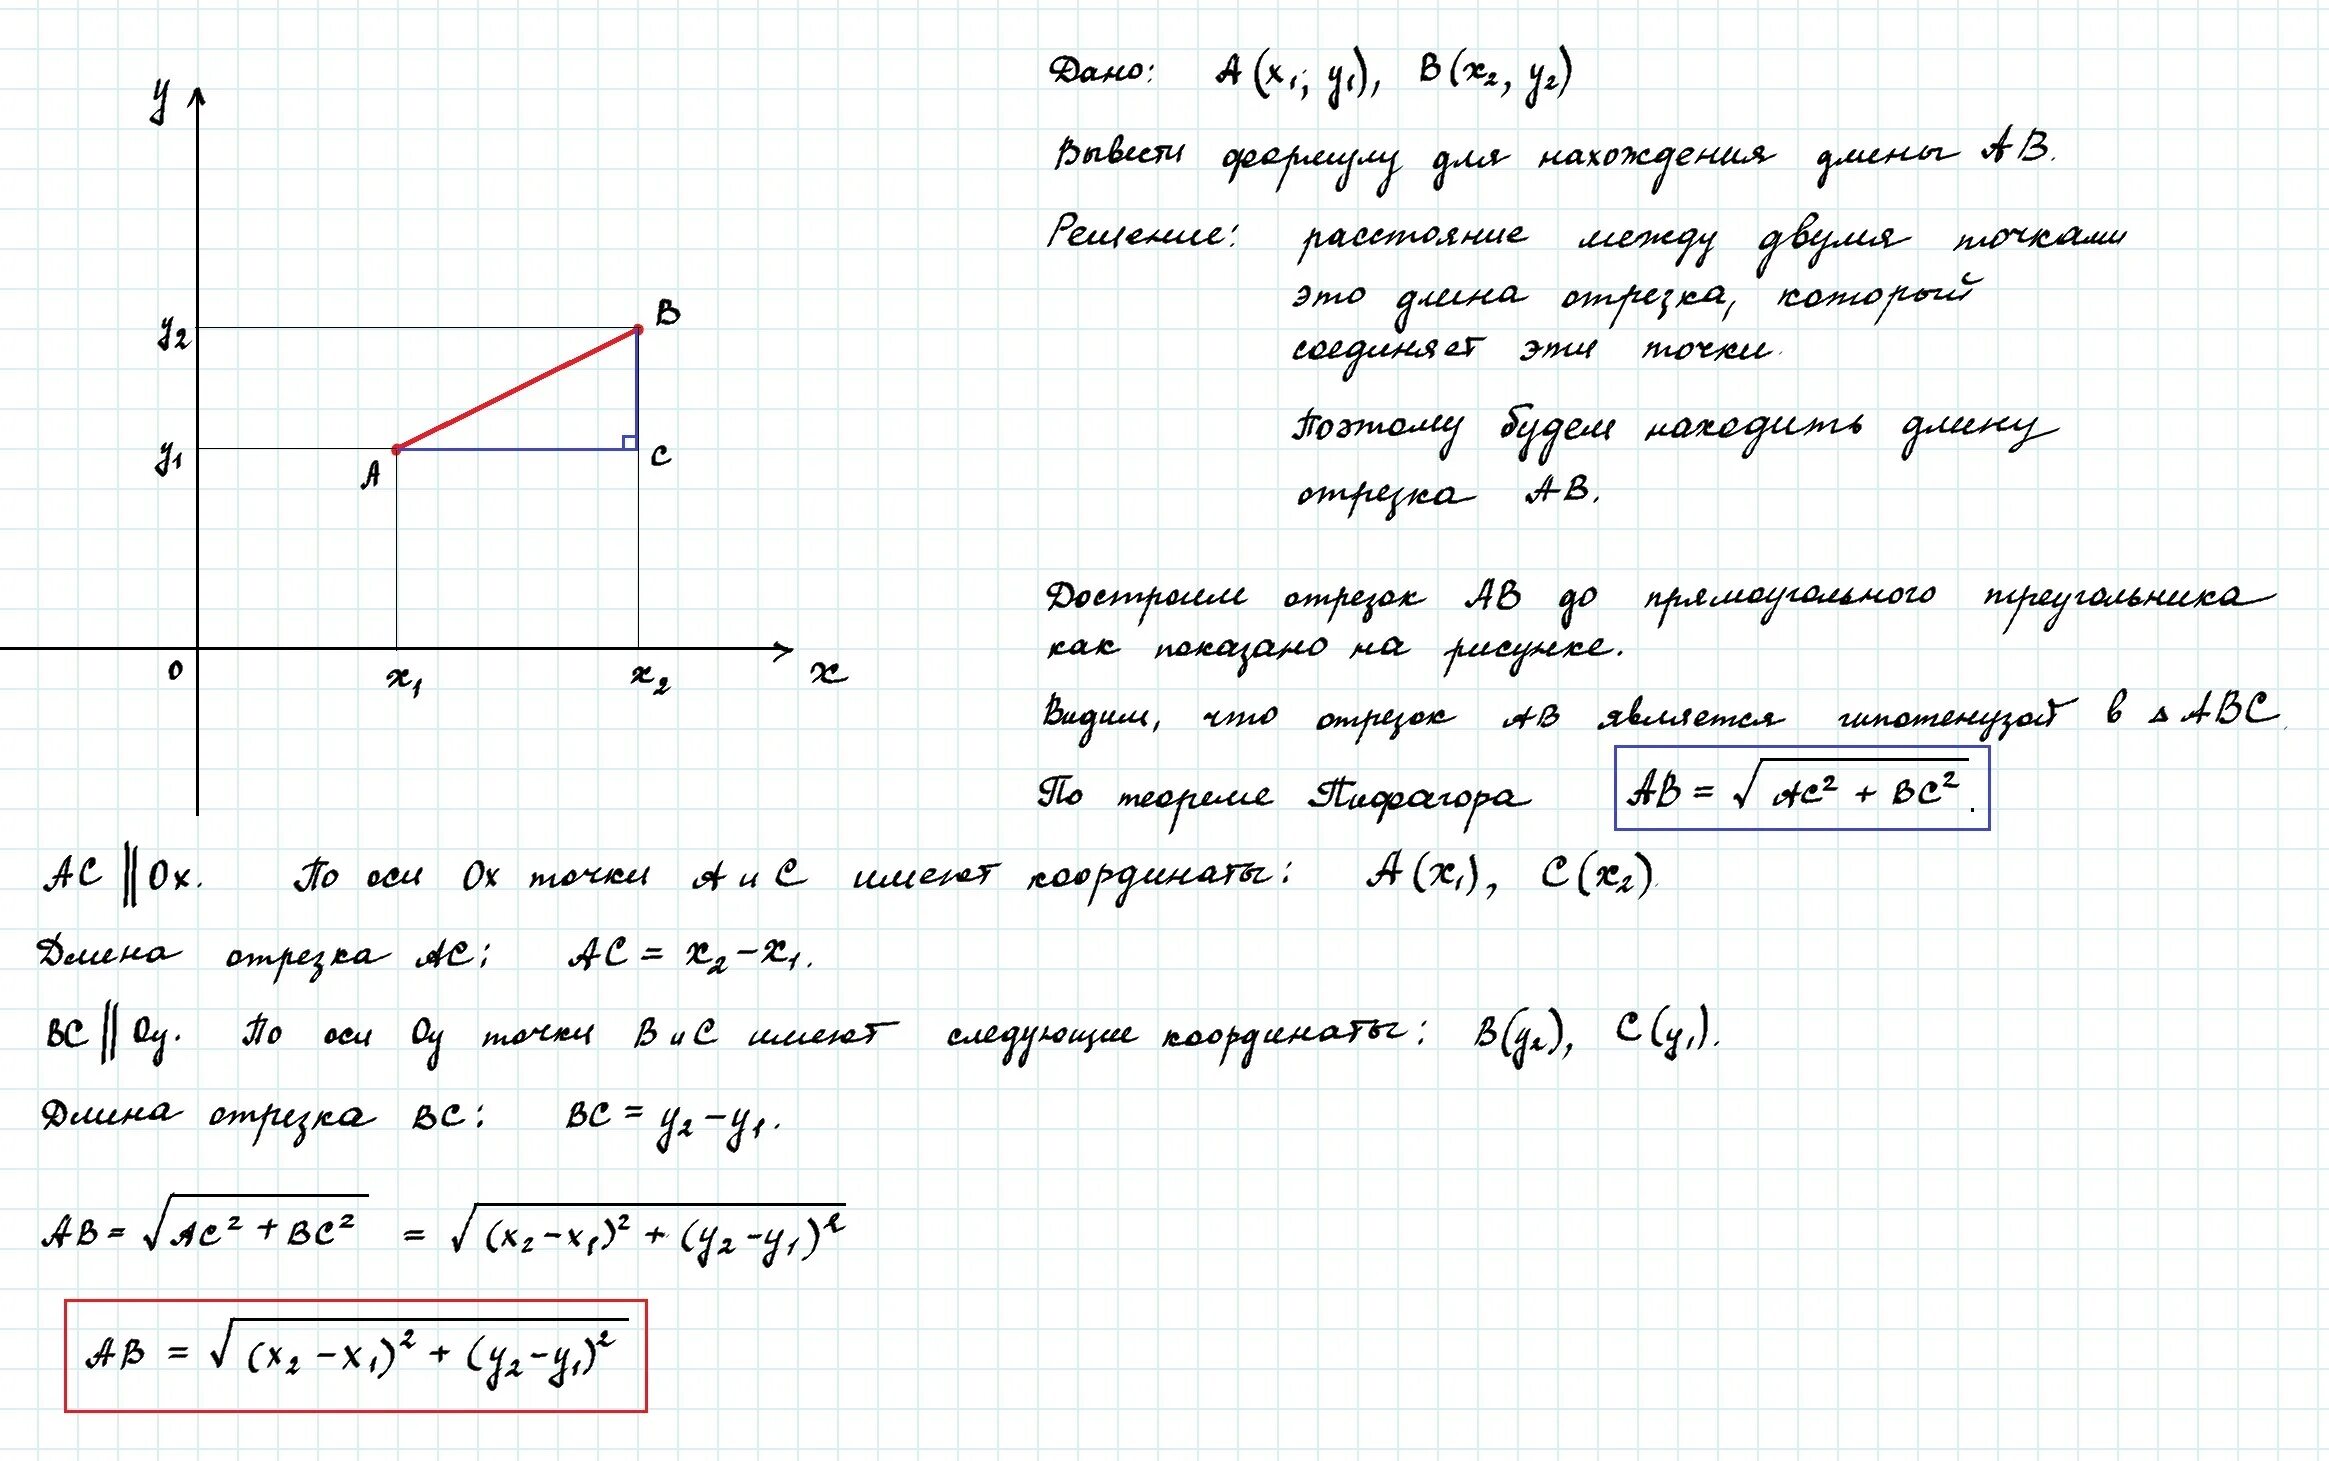 y
y₂
B
y₁
A
C
0
x₁
x₂
x
Дано: A(x₁; y₁), B(x₂, y₂)
Вывести формулу для нахождения длины AB.
Решение: расстояние между двумя точками
это длина отрезка, который
соединяет эти точки.
Поэтому будем находить длину
отрезка AB.
Достроим отрезок AB до прямоугольного треугольника
как показано на рисунке.
Видим, что отрезок AB является гипотенузой в ΔABC.
По теореме Пифагора AB = √(AC² + BC²).
AC ∥ Ox. По оси Ox точки A и C имеют координаты: A(x₁), C(x₂).
Длина отрезка AC: AC = x₂ – x₁.
BC ∥ Oy. По оси Oy точки B и C имеют следующие координаты: B(y₂), C(y₁).
Длина отрезка BC: BC = y₂ – y₁.
AB = √(AC² + BC²) = √((x₂ – x₁)² + (y₂ – y₁)²)
AB = √((x₂ – x₁)² + (y₂ – y₁)²)